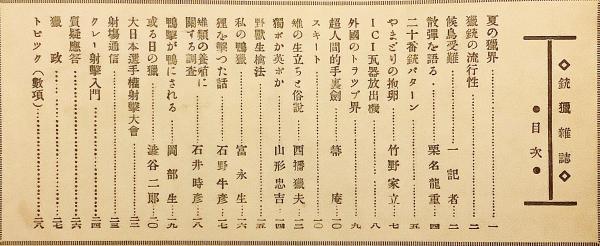 ◇銃獵雜誌◇
●目次●
夏の獵界……………………一
獵銃の流行性……………………二
候鳥受難……………一記者…二
散彈を語る…………栗名龍重…四
二十番銃パターン……………………五
やまどりの抱卵……竹野家立…七
ICI瓦器放出機……………………八
外國のトラツプ界……………………九
超人間的手裏劍……蒡庵…一〇
スキート……………………一〇
雉の生立ちと俗說…西播獵夫…一二
獨ポか英ポか………山形忠吉…一四
野獸生擒法……………………一五
私の鴨獵……………富永生…一六
狸を擊つた話………石野牛彥…一七
雉類の養殖に
關する調査…………石井時彥…一八
鴨擊が鴨にされる…岡部生…一九
或る日の獵…………澁谷二郞…二〇
大日本選手權射擊大會……………………二二
射場通信……………………二三
クレー射擊入門……………………二四
質疑應答……………………二六
獵政……………………二七
トピツク(數項)……………………二八